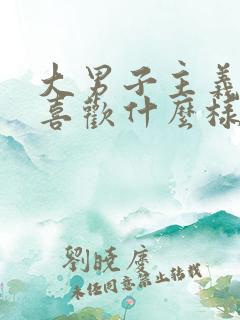 大男子主義
喜歡什麼樣
劉曉慶
未经同意禁止转载